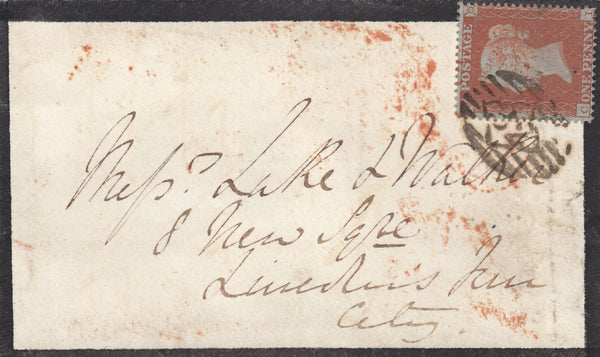 POSTAGE
ONE PENNY
Messrs. Lake & Walker
8 New Sqre
Lincoln's Inn
City.